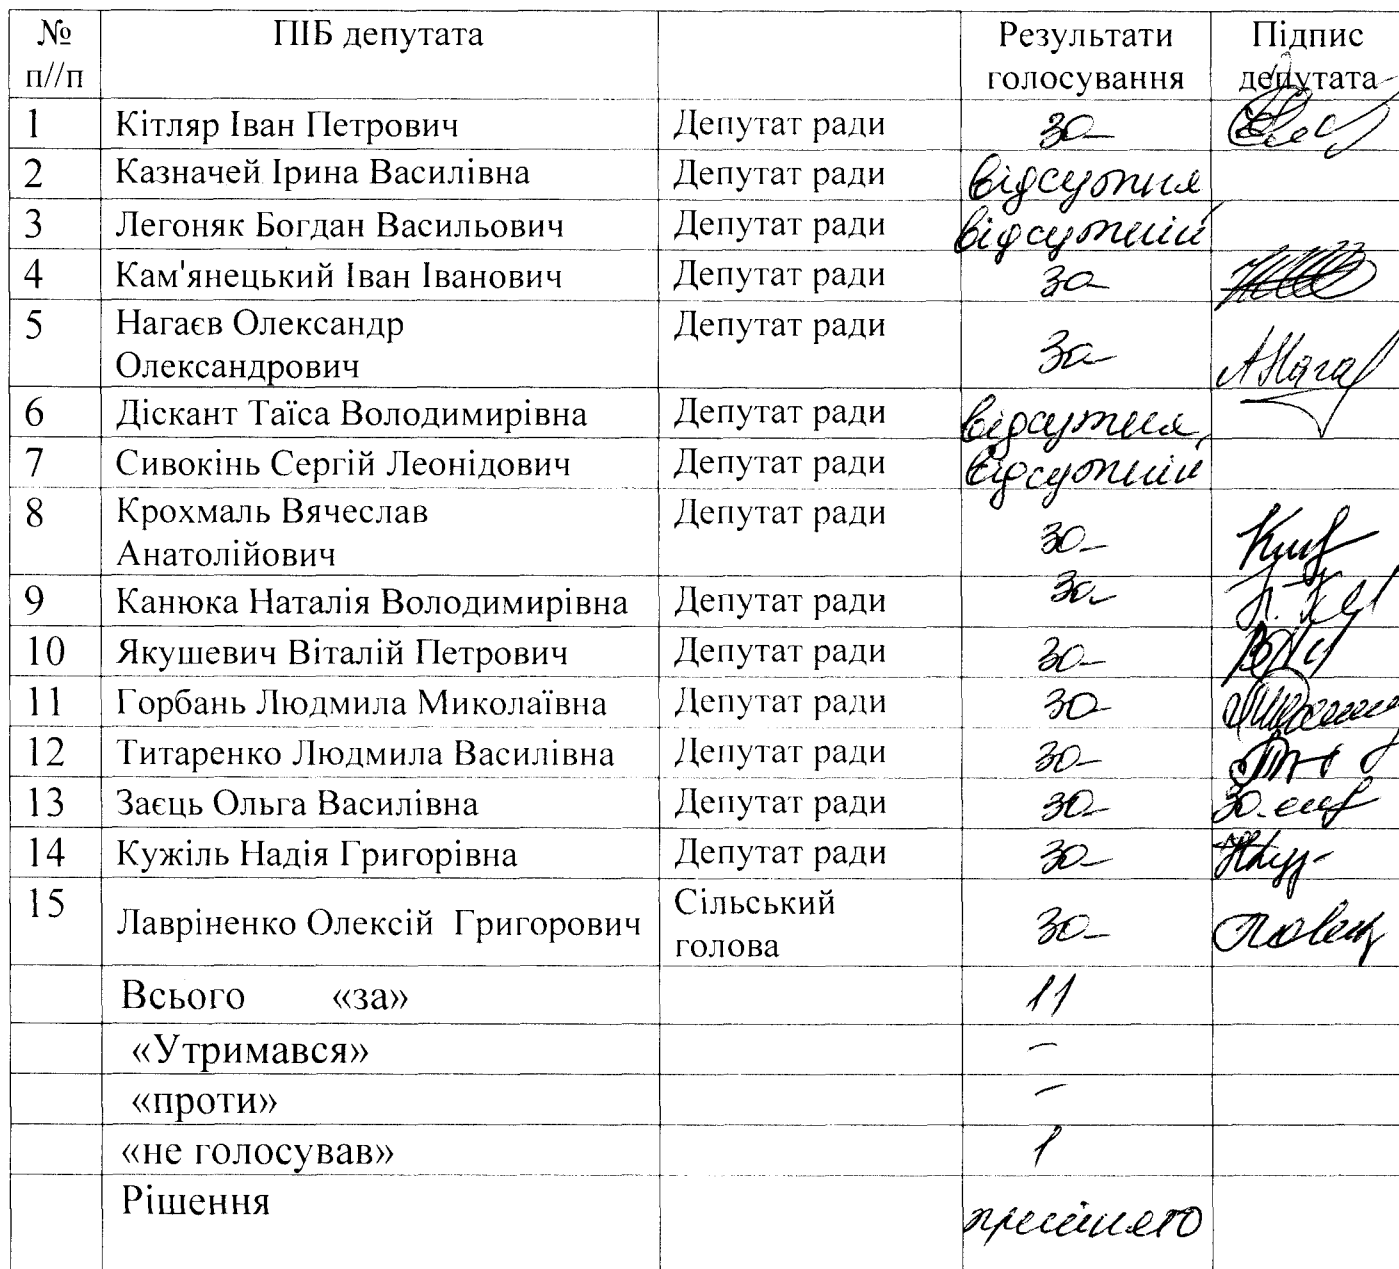 № п//п ПІБ депутата Результати голосування Підпис депутата
1 Кітляр Іван Петрович Депутат ради за
2 Казначей Ірина Василівна Депутат ради відсутня
3 Легоняк Богдан Васильович Депутат ради відсутній
4 Кам'янецький Іван Іванович Депутат ради за
5 Нагаєв Олександр Депутат ради
Олександрович за
6 Діскант Таїса Володимирівна Депутат ради відсутня
7 Сивокінь Сергій Леонідович Депутат ради відсутній
8 Крохмаль Вячеслав Депутат ради
Анатолійович за
9 Канюка Наталія Володимирівна Депутат ради за
10 Якушевич Віталій Петрович Депутат ради за
11 Горбань Людмила Миколаївна Депутат ради за
12 Титаренко Людмила Василівна Депутат ради за
13 Заєць Ольга Василівна Депутат ради за
14 Кужіль Надія Григорівна Депутат ради за
15 Лавріненко Олексій Григорович Сільський голова за
Всього «за» 11
«Утримався» –
«проти» –
«не голосував» 1
Рішення прийнято